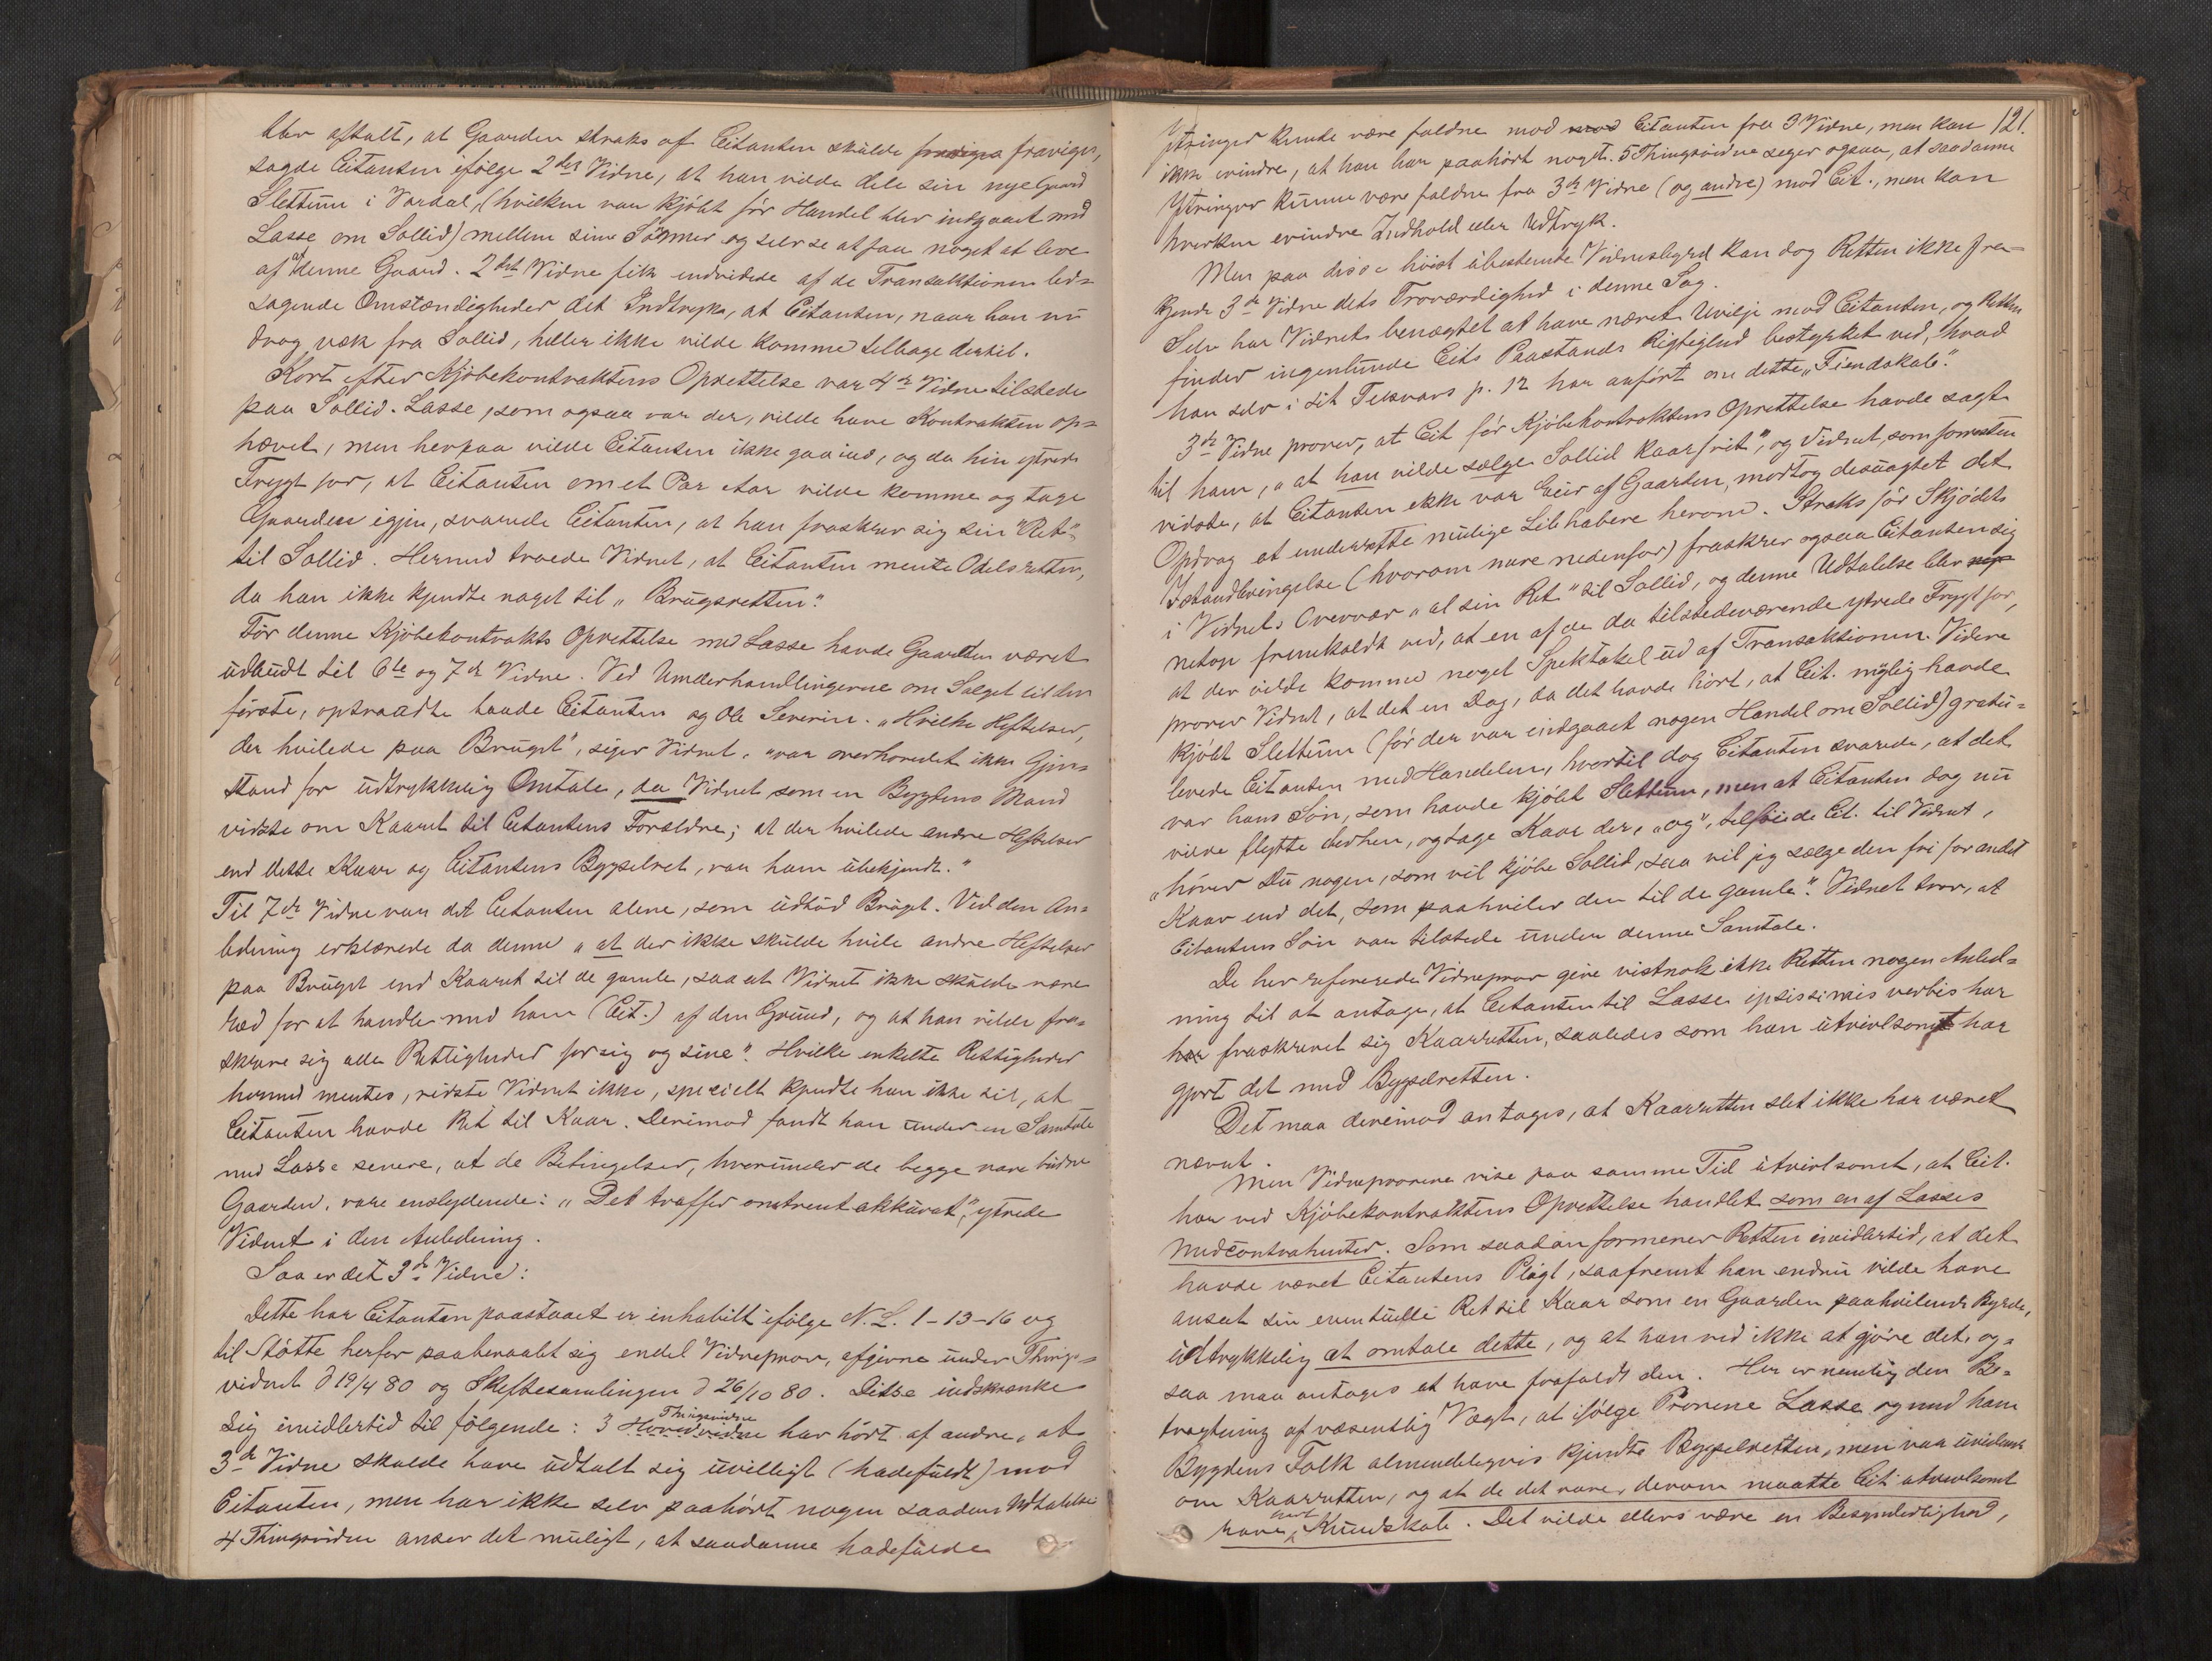 blev aftalt, at Gaarden straks af Citanten skulde fraviges fraviges,
sagde Citanten ifølge 2det Vidne, at han vilde dele sin nye Gaard
Slettum i Vardal, (hvilken var kjøbt før Handel blev indgaaet med
Lasse om Sollid) mellem sine Sønner og selv se at faa noget at leve
af af denne Gaard. 2det Vidne fik endvidere af de Transaktionen led-
sagende Omstændigheder det Indtryk, at Citanten, naar han nu
drog væk fra Sollid, heller ikke vilde komme tilbage dertil.
Kort efter Kjøbekontraktens Oprettelse var 4de Vidne tilstede
paa Sollid. Lasse, som ogsaa var der, vilde have Kontrakten op-
hævet, men herpaa vilde Citanten ikke gaa ind, og da hin ytrede
Frygt for, at Citanten om et Par Aar vilde komme og tage
Gaarden igjen, svarede Citanten, at han fraskrev sig sin "Ret"
til Sollid. Hermed troede Vidnet, at Citanten mente Odelsretten,
da han ikke kjendte noget til „Brugsretten".
Før denne Kjøbekontrakts Oprettelse med Lasse havde Gaarden været
udbudt til 6te og 7de Vidne. Ved Underhandlingerne om Salget til den
første, optraadte baade Citanten og Ole Severin. „Hvilke Heftelser,
der hvilede paa Bruget", siger Vidnet, „var overhovedet ikke Gjen-
stand for udtrykkelig Omtale, da Vidnet som en Bygdens Mand
vidste om Kaaret til Citantens Forældre; at der hvilede andre Heftelser
end dette Kaar og Citantens Bygselret, var ham ubekjendt."
Til 7de Vidne var det Citanten alene, som udbød Bruget. Ved den An-
ledning erklærede da denne „at der ikke skulde hvile andre Heftelser
paa Bruget end Kaaret til de gamle, saa at Vidnet ikke skulde være
ræd for at handle med ham (Cit.) af den Grund, og at han vilde fra-
skrive sig alle Rettigheder for sig og sine". Hvilke enkelte Rettigheder
hermed mentes, vidste Vidnet ikke, specielt kjendte han ikke til, at
Citanten havde Ret til Kaar. Derimod fandt han under en Samtale
med Lasse senere, at de Betingelser, hvorunder de begge vare budne
Gaarden, vare enslydende: „Det træffer omtrent akkurat", ytrede
Vidnet i den Anledning.
Saa er det 3de Vidne:
Dette har Citanten paastaaet er inhabilt ifølge N. L. 1-13-16 og
til Støtte herfor paaberaabt sig endel Vidneprov, afgivne under Things-
vidnet d 19/4 80 og Skiftesamlingen d 26/10 80. Disse indskrænke
sig imidlertid til følgende: 3 Hovedvidne Thingsvidne har hørt af andre, at
3de Vidne skulde have udtalt sig uvilligt (hadefuldt) mod
Citanten, men har ikke selv paahørt nogen saadan Udtalelse
4 Thingsvidne anser det muligt, at saadanne hadefulde
121.
Ytringer kunde være faldne mod mod Citanten fra 3 Vidne, men kan
ikke erindre, at han har paahørt noget. 5 Thingsvidne siger ogsaa, at saadanne
Ytringer kunne være faldne fra 3de Vidne (og andre) mod Cit., men kan
hverken erindre Indhold eller Udtryk.
Men paa disse høist ubestemte Vidnesbyrd kan dog Retten ikke fra-
kjende 3de Vidne dets Troværdighed i denne Sag.
Selv har Vidnet benægtet at have næret Uvilje mod Citanten, og Retten
finder ingenlunde Cits Paastands Rigtighed bestyrket ved, hvad
han selv i sit Tilsvars p. 12 har anført om dette „Fiendskab".
3de Vidne prover, at Cit før Kjøbekontraktens Oprettelse havde sagt
til ham, „at han vilde sælge Sollid kaarfrit", og Vidnet, som forresten
vidste, at Citanten ikke var Eier af Gaarden, modtog desuagtet det
Opdrag at underrette mulige Liebhabere herom. Straks før Skjødets
Istandbringelse (hvorom mere nedenfor) fraskrev ogsaa Citanten sig
i Vidnets Overvær „al sin Ret" til Sollid, og denne Udtalelse blev nep
netop fremkaldt ved, at en af de da tilstedeværende ytrede Frygt for,
at der vilde komme noget Spektakel ud af Transaktionen. Videre
prover Vidnet, at det en Dag, da det havde hørt, at Cit. nylig havde
kjøbt Slettum (før der var indgaaet nogen Handel om Sollid) gratu-
lerede Citanten med Handelen, hvortil dog Citanten svarede, at det
var hans Søn, som havde kjøbt Slettum, men at Citanten dog nu
vilde flytte derhen, og tage Kaar der, „og", tilføiede Cit. til Vidnet,
„hører Du nogen, som vil kjøbe Sollid, saa vil jeg sælge den fri for andet
Kaar end det, som paahviler den til de gamle". Vidnet tror, at
Citantens Søn var tilstede under denne Samtale.
De her refererede Vidneprov give vistnok ikke Retten nogen Anled-
ning til at antage, at Citanten til Lasse ipsissimis verbis har
har fraskrevet sig Kaarretten, saaledes som han utvivlsomt har
gjort det med Bygselretten.
Det maa derimod antages, at Kaarretten slet ikke har været
nævnt.
Men Vidneprovene vise paa samme Tid utvivlsomt, at Cit.
har ved Kjøbekontraktens Oprettelse handlet som en af Lasses
Medcontrahenter. Som saadan formener Retten imidlertid, at det
havde været Citantens Pligt, saafremt han endnu vilde have
anseet sin eventuelle Ret til Kaar som en Gaarden paahvilende Byrde,
udtrykkelig at omtale dette, og at han ved ikke at gjøre det, og-
saa maa antages at have frafaldt den. Her er nemlig den Be-
tragtning af væsentlig Vægt, at ifølge Provene Lasse og med ham
Bygdens Folk almindeligvis kjendte Bygselretten, men var uvidende
om Kaarretten, og at de det vare, derom maatte Cit utvivlsomt
have havt Kundskab. Det vilde ellers være en Besynderlighed,